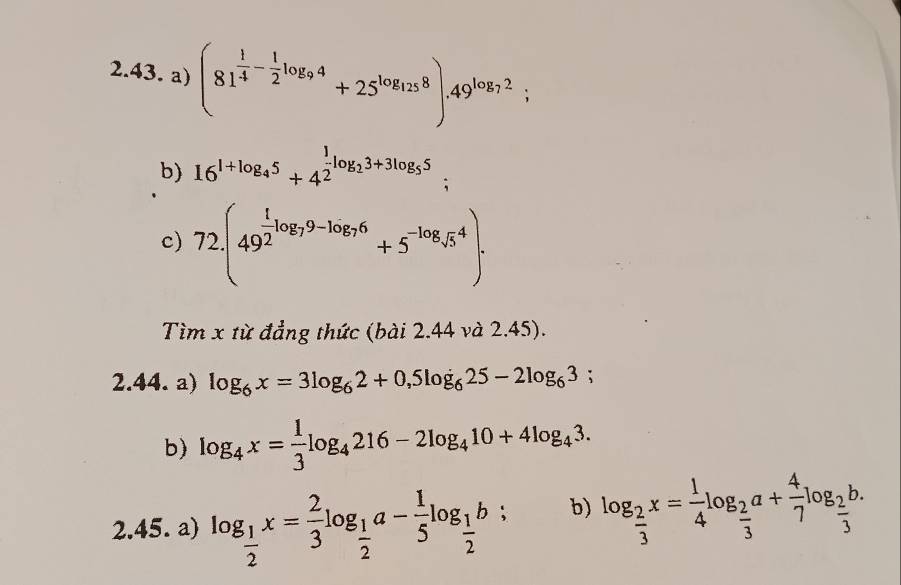 2.43. a) $\left(81^{\frac{1}{4}-\frac{1}{2}\log_9 4} + 25^{\log_{125} 8}\right).49^{\log_7 2}$ ;
b) $16^{1+\log_4 5} + 4^{\frac{1}{2}\log_2 3+3\log_5 5}$ ;
c) $72.\left(49^{\frac{1}{2}\log_7 9-\log_7 6} + 5^{-\log_{\sqrt{5}} 4}\right).$
Tìm x từ đẳng thức (bài 2.44 và 2.45).
2.44. a) $\log_6 x = 3\log_6 2 + 0,5\log_6 25 - 2\log_6 3$ ;
b) $\log_4 x = \frac{1}{3}\log_4 216 - 2\log_4 10 + 4\log_4 3.$
2.45. a) $\log_{\frac{1}{2}} x = \frac{2}{3}\log_{\frac{1}{2}} a - \frac{1}{5}\log_{\frac{1}{2}} b$ ; b) $\log_{\frac{2}{3}} x = \frac{1}{4}\log_{\frac{2}{3}} a + \frac{4}{7}\log_{\frac{2}{3}} b.$